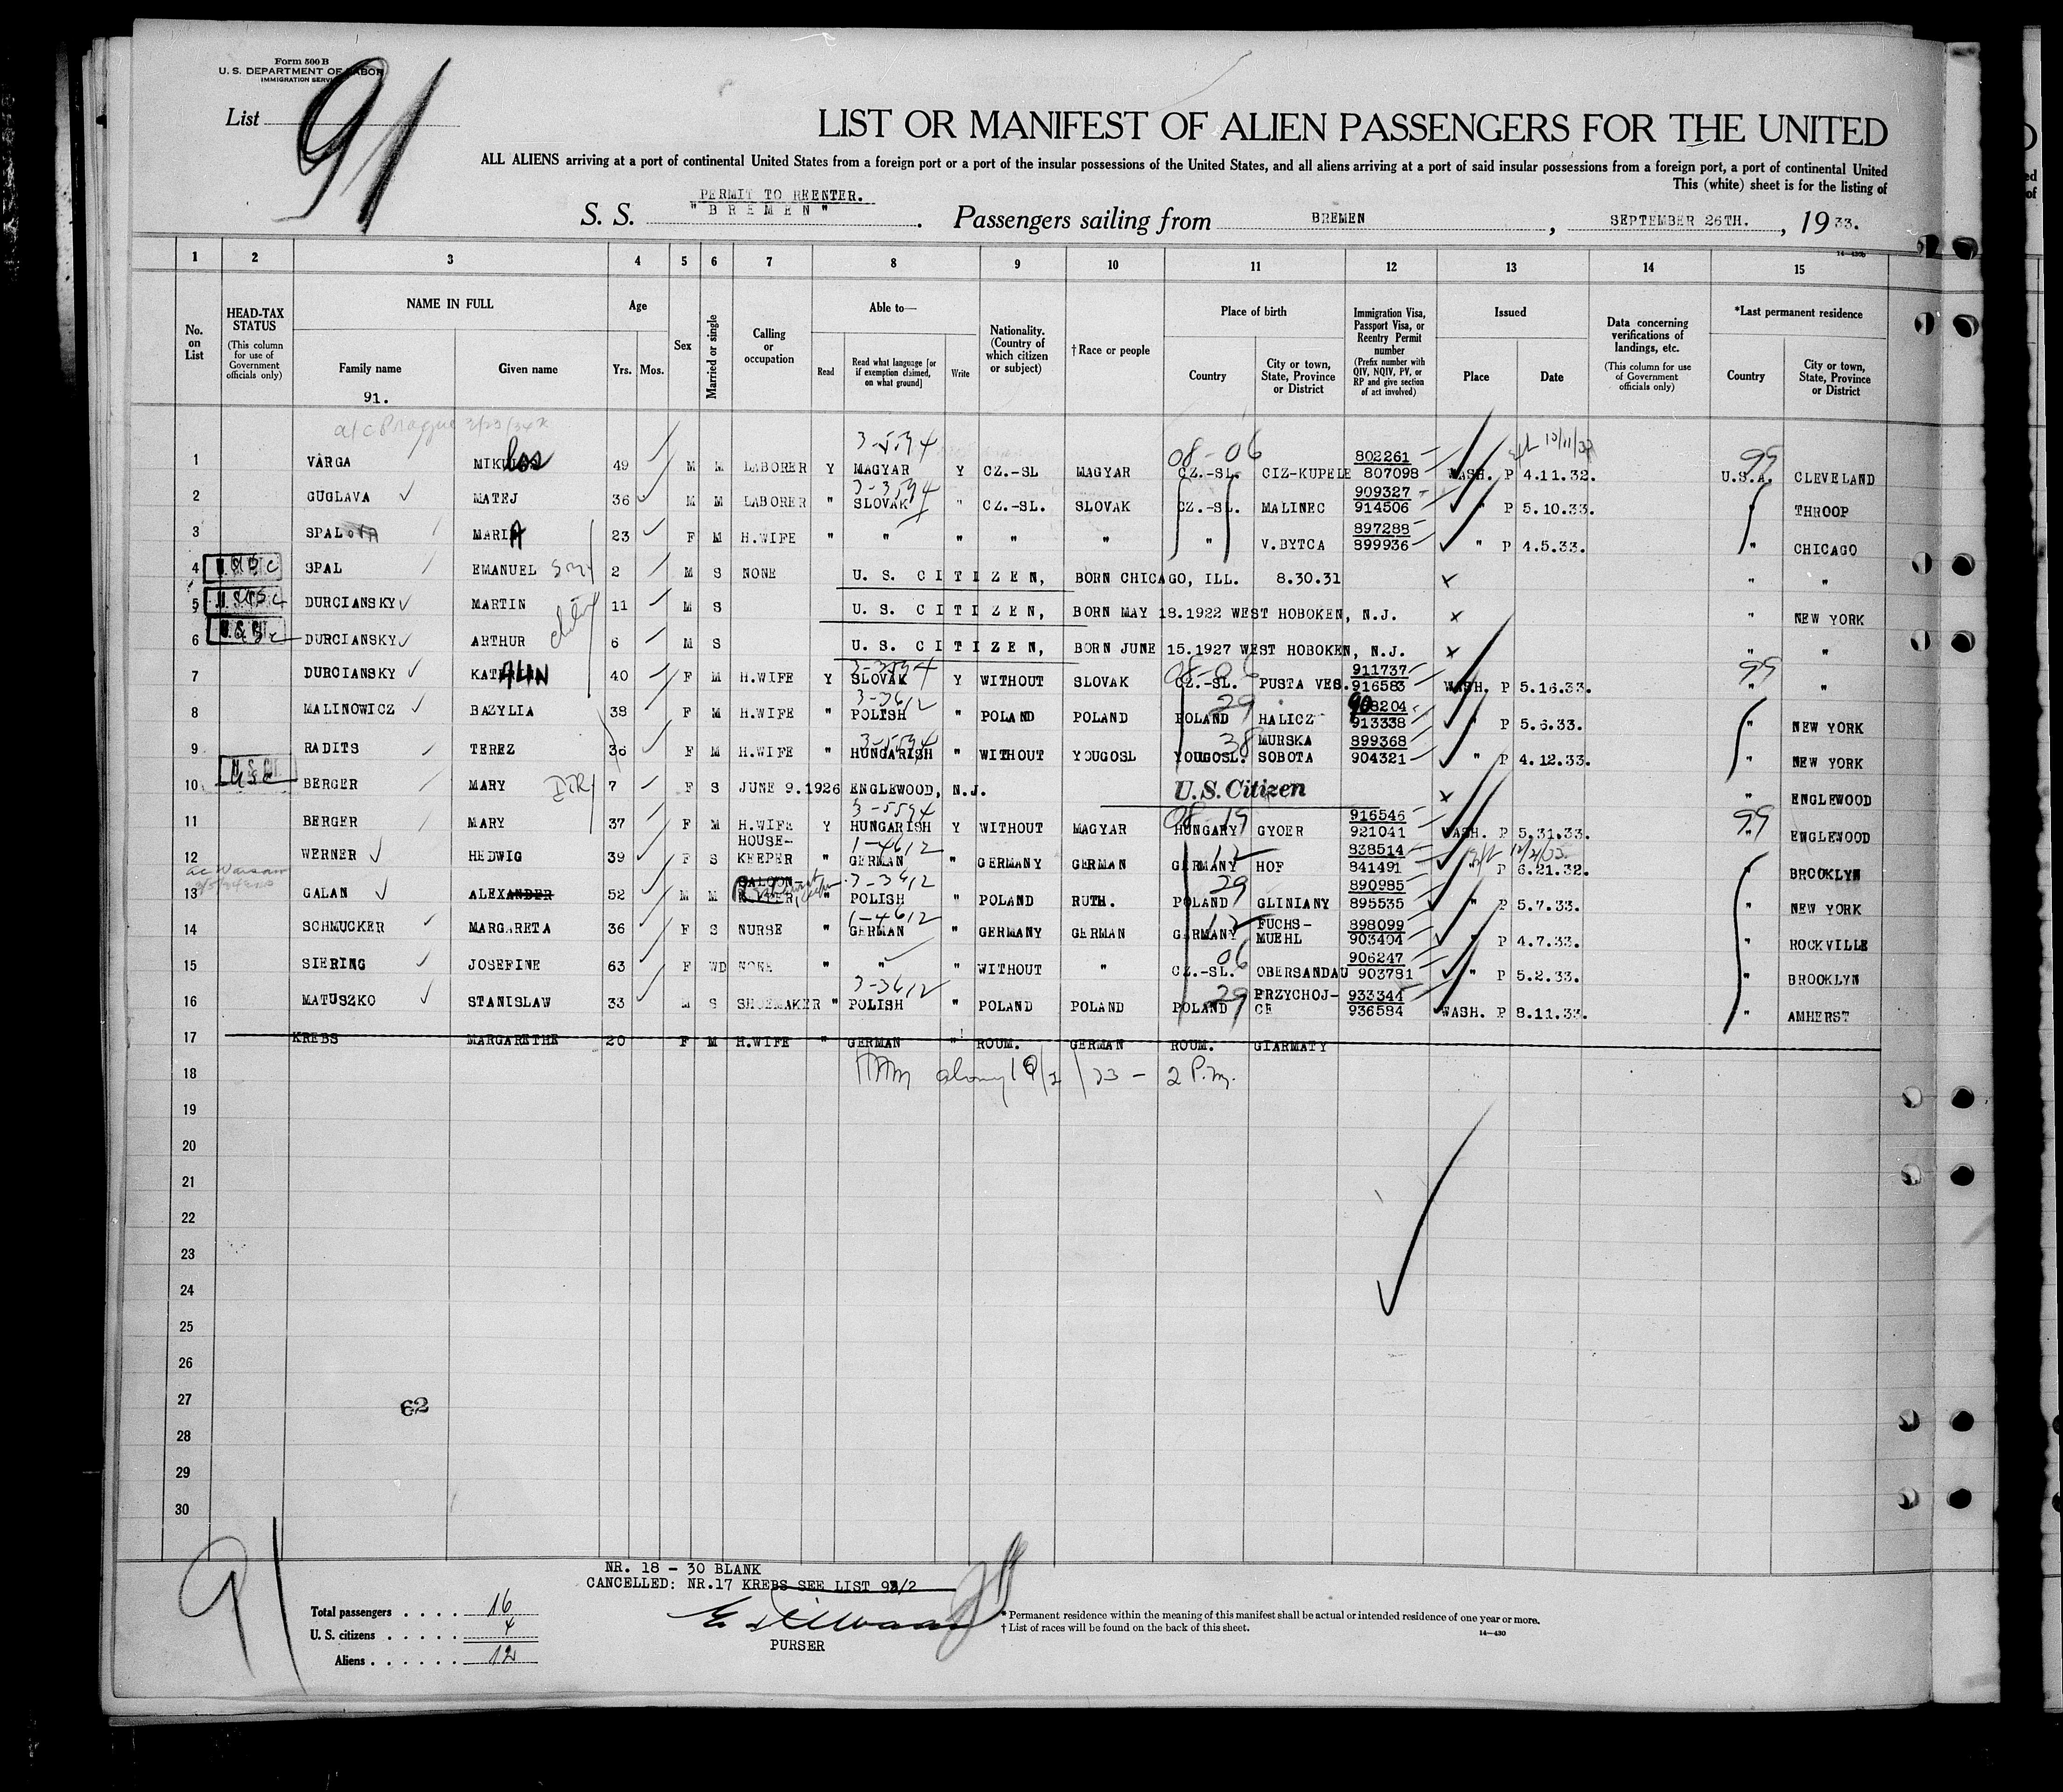 Form 500 B
U. S. DEPARTMENT OF LABOR
IMMIGRATION SERVICE
List 91
LIST OR MANIFEST OF ALIEN PASSENGERS FOR THE UNITED
ALL ALIENS arriving at a port of continental United States from a foreign port or a port of the insular possessions of the United States, and all aliens arriving at a port of said insular possessions from a foreign port, a port of continental United
This (white) sheet is for the listing of
PERMIT TO REENTER.
S. S. "BREMEN". Passengers sailing from BREMEN, SEPTEMBER 26TH., 1933.
14-430b
1 2 3 4 5 6 7 8 9 10 11 12 13 14 15
No. on List
HEAD-TAX STATUS (This column for use of Government officials only)
NAME IN FULL Family name Given name
Age Yrs. Mos.
Sex
Married or single
Calling or occupation
Able to— Read Read what language [or if exemption claimed, on what ground] Write
Nationality. (Country of which citizen or subject)
† Race or people
Place of birth Country City or town, State, Province or District
Immigration Visa, Passport Visa, or Reentry Permit number (Prefix number with QIV, NQIV, PV, or RP and give section of act involved)
Issued Place Date
Data concerning verifications of landings, etc. (This column for use of Government officials only)
*Last permanent residence Country City or town, State, Province or District
91.
a/c Prague 2/23/34
1 VARGA MIKLos 49 M M LABORER Y 3-5594 MAGYAR Y CZ.-SL MAGYAR 08-06 CZ.-SL. CIZ-KUPELE 802261 807098 WASH. P 4.11.32. 99 U.S.A. CLEVELAND
2 GUGLAVA MATEJ 36 M M LABORER " 3-3594 SLOVAK " CZ.-SL. SLOVAK CZ.-SL. MALINEC 909327 914506 " P 5.10.33. " THROOP
3 SPALOVA MARIA 23 F M H.WIFE " " " " " " V.BYTCA 897288 899936 " P 4.5.33. " CHICAGO
4 USC SPAL EMANUEL 2 M S NONE U. S. CITIZEN, BORN CHICAGO, ILL. 8.30.31 x " "
5 USC DURCIANSKY MARTIN 11 M S U. S. CITIZEN, BORN MAY 18.1922 WEST HOBOKEN, N.J. x " NEW YORK
6 USC DURCIANSKY ARTHUR 6 M S U. S. CITIZEN, BORN JUNE 15.1927 WEST HOBOKEN, N.J. x " "
7 DURCIANSKY KATARIN 40 F M H.WIFE Y 3-3594 SLOVAK Y WITHOUT SLOVAK 08-06 CZ.-SL. PUSTA VES. 911737 916583 WASH. P 5.16.33. 99 " "
8 MALINOWICZ BAZYLIA 38 F M H.WIFE " 3-3612 POLISH " POLAND POLAND 29 POLAND HALICZ 908204 913338 " P 5.6.33. " NEW YORK
9 RADITS TEREZ 36 F M H.WIFE " 3-5594 HUNGARISH " WITHOUT YOUGOSL 38 YOUGOSL. MURSKA SOBOTA 899368 904321 " P 4.12.33. " NEW YORK
10 USC BERGER MARY 7 F S JUNE 9.1926 ENGLEWOOD, N.J. U.S. Citizen x " ENGLEWOOD
11 BERGER MARY 37 F M H.WIFE Y 3-5594 HUNGARISH Y WITHOUT MAGYAR 08-19 HUNGARY GYOER 916546 921041 WASH. P 5.31.33. 99 " ENGLEWOOD
12 WERNER HEDWIG 39 F S HOUSE-KEEPER " 1-4612 GERMAN " GERMANY GERMAN 12 GERMANY HOF 838514 841491 " P 6.21.32. " BROOKLYN
ac Warsaw
13 GALAN ALEXANDER 52 M M SALOON- " 3-3612 POLISH " POLAND RUTH. 29 POLAND GLINIANY 890985 895535 " P 5.7.33. " NEW YORK
14 SCHMUCKER MARGARETA 36 F S NURSE " 1-4612 GERMAN " GERMANY GERMAN 12 GERMANY FUCHS-MUEHL 898099 903404 " P 4.7.33. " ROCKVILLE
15 SIERING JOSEFINE 63 F WD NONE " " " WITHOUT " 06 CZ.-SL. OBERSANDAU 906247 903781 " P 5.2.33. " BROOKLYN
16 MATUSZKO STANISLAW 33 M S SHOEMAKER " 3-3612 POLISH " POLAND POLAND 29 POLAND PRZYCHOJ-CE 933344 936584 WASH. P 8.11.33. " AMHERST
17 KREBS MARGARETHE 20 F M H.WIFE " GERMAN " ROUM. GERMAN ROUM. GIARMATY
18 2 P.m.
19
20
21
22
23
24
25
26
27
28
29
30
62
91
NR. 18 - 30 BLANK
CANCELLED: NR.17 KREBS SEE LIST 93/2
Total passengers . . . . 16
U. S. citizens . . . . . 4
Aliens . . . . . . 12
PURSER
* Permanent residence within the meaning of this manifest shall be actual or intended residence of one year or more.
† List of races will be found on the back of this sheet.
14—430